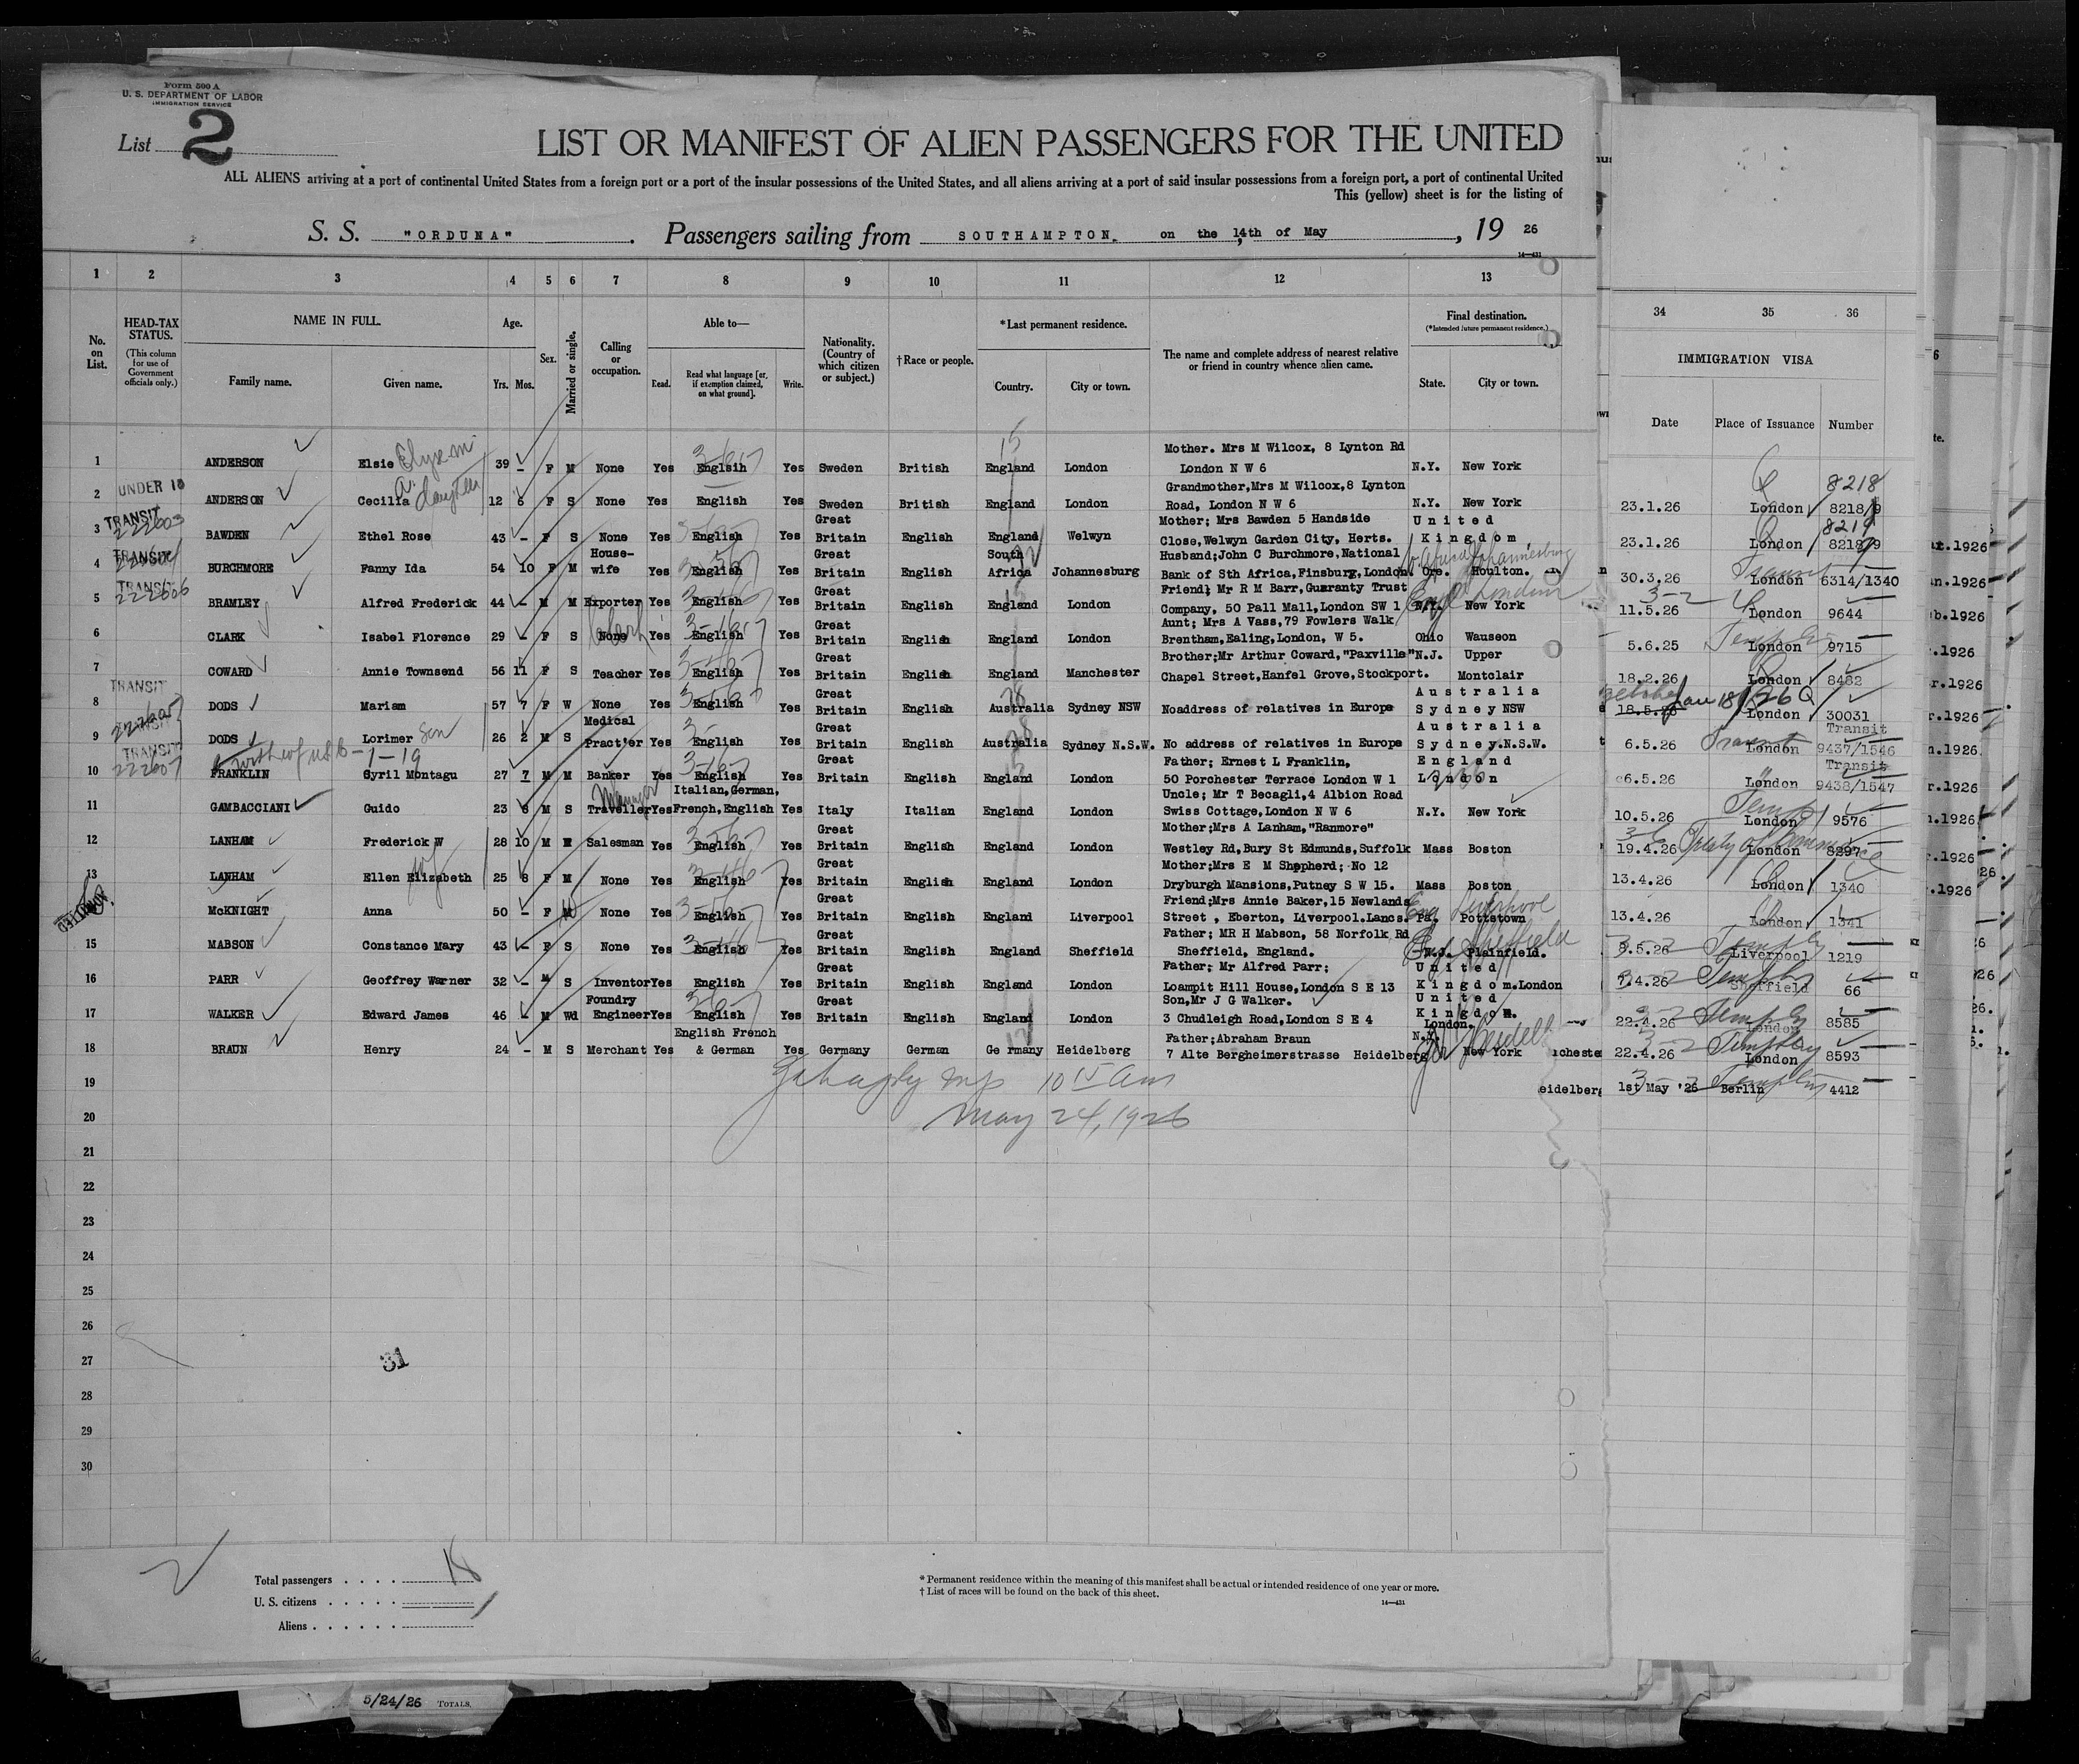 Form 500 A
U. S. DEPARTMENT OF LABOR
IMMIGRATION SERVICE
List 2
LIST OR MANIFEST OF ALIEN PASSENGERS FOR THE UNITED
ALL ALIENS arriving at a port of continental United States from a foreign port or a port of the insular possessions of the United States, and all aliens arriving at a port of said insular possessions from a foreign port, a port of continental United
This (yellow) sheet is for the listing of
S. S. "ORDUNA". Passengers sailing from SOUTHAMPTON. on the 14th of May, 19 26
14—431
1 2 3 4 5 6 7 8 9 10 11 12 13 34 35 36
No. on List.
HEAD-TAX STATUS.
(This column for use of Government officials only.)
NAME IN FULL.
Family name. Given name.
Age.
Yrs. Mos.
Sex.
Married or single.
Calling or occupation.
Able to—
Read. Read what language [or, if exemption claimed, on what ground]. Write.
Nationality. (Country of which citizen or subject.)
†Race or people.
*Last permanent residence.
Country. City or town.
The name and complete address of nearest relative or friend in country whence alien came.
Final destination.
(*Intended future permanent residence.)
State. City or town.
IMMIGRATION VISA
Date Place of Issuance Number
1 ANDERSON Elsie 39 - F M None Yes Englsih Yes Sweden British England London Mother. Mrs M Wilcox, 8 Lynton Rd London N W 6 N.Y. New York
2 UNDER 16 ANDERSON Cecilia daughter 12 6 F S None Yes English Yes Sweden British England London Grandmother,Mrs M Wilcox,8 Lynton Road, London N W 6 N.Y. New York
3 TRANSIT 222603 BAWDEN Ethel Rose 43 - F S None Yes English Yes Great Britain English England Welwyn Mother; Mrs Bawden 5 Handside Close,Welwyn Garden City, Herts. United Kingdom
4 TRANSIT BURCHMORE Fanny Ida 54 10 F M House-wife Yes English Yes Great Britain English South Africa Johannesburg Husband;John C Burchmore,National Bank of Sth Africa,Finsbury,London. Ore. Houlton.
5 TRANSIT 222606 BRAMLEY Alfred Frederick 44 - M M Exporter Yes English Yes Great Britain English England London Friend; Mr R M Barr,Guaranty Trust Company, 50 Pall Mall,London SW 1 N.Y. New York
6 CLARK Isabel Florence 29 - F S None Yes English Yes Great Britain English England London Aunt; Mrs A Vass,79 Fowlers Walk Brentham,Ealing,London, W 5. Ohio Wauseon
7 COWARD Annie Townsend 56 11 F S Teacher Yes English Yes Great Britain English England Manchester Brother;Mr Arthur Coward,"Paxville" Chapel Street,Hanfel Grove,Stockport. N.J. Upper Montclair
8 TRANSIT DODS Mariam 57 7 F W None Yes English Yes Great Britain English Australia Sydney NSW Noaddress of relatives in Europe Australia Sydney NSW
9 TRANSIT DODS Lorimer Son 26 2 M S Medical Pract'er Yes English Yes Great Britain English Australia Sydney N.S.W. No address of relatives in Europe Australia Sydney.N.S.W.
10 TRANSIT 222607 FRANKLIN Syril Montagu 27 7 M M Banker Yes English Yes Great Britain English England London Father; Ernest L Franklin, 50 Porchester Terrace London W 1 England London
11 GAMBACCIANI Guido 23 8 M S Traveller Manager Yes Italian,German, French,English Yes Italy Italian England London Uncle; Mr T Becagli,4 Albion Road Swiss Cottage,London N W 6 N.Y. New York
12 LANHAM Frederick W 28 10 M M Salesman Yes English Yes Great Britain English England London Mother;Mrs A Lanham,"Ranmore" Westley Rd,Bury St Edmunds,Suffolk Mass Boston
13 LANHAM Ellen Elizabeth wf 25 8 F M None Yes English Yes Great Britain English England London Mother;Mrs E M Shepherd; No 12 Dryburgh Mansions,Putney S W 15. Mass Boston
ADMITTED McKNIGHT Anna 50 - F None Yes English Yes Great Britain English England Liverpool Friend;Mrs Annie Baker,15 Newlands Street , Eberton, Liverpool.Lancs. Pa. Pottstown
15 MABSON Constance Mary 43 - F S None Yes English Yes Great Britain English England Sheffield Father; MR H Mabson, 58 Norfolk Rd Sheffield, England. N.J. Plainfield.
16 PARR Geoffrey Warner 32 - M S Inventor Yes English Yes Great Britain English England London Father; Mr Alfred Parr; Loampit Hill House,London S E 13 United Kingdom.London
17 WALKER Edward James 46 - M Wd Foundry Engineer Yes English Yes Great Britain English England London Son,Mr J G Walker. 3 Chudleigh Road,London S E 4 United Kingdom. London.
18 BRAUN Henry 24 - M S Merchant Yes English French & German Yes Germany German Germany Heidelberg Father;Abraham Braun 7 Alte Bergheimerstrasse Heidelberg N.Y. New York
8218
23.1.26 London 8218/9
8219
23.1.26 London 8218/9
30.3.26 Transit London 6314/1340
11.5.26 London 9644
5.6.25 London 9715
18.2.26 London 8482
18.5.26 Jan 18/26 Q London 30031
Transit
6.5.26 Transit London 9437/1546
Transit
6.5.26 London 9438/1547
10.5.26 London 9576
19.4.26 Treaty of Commerce London 8297
13.4.26 London 1340
13.4.26 London 1341
9.5.26 Liverpool 1219
7.4.26 Sheffield 66
22.4.26 London 8585
22.4.26 London 8593
eidelberg 1st May '26 Berlin 4412
19
10 15 am
20
May 24, 1926
21
22
23
24
25
26
27
31
28
29
30
Total passengers 18
U. S. citizens
Aliens
* Permanent residence within the meaning of this manifest shall be actual or intended residence of one year or more.
† List of races will be found on the back of this sheet.
14—431
5/24/26 TOTALS.